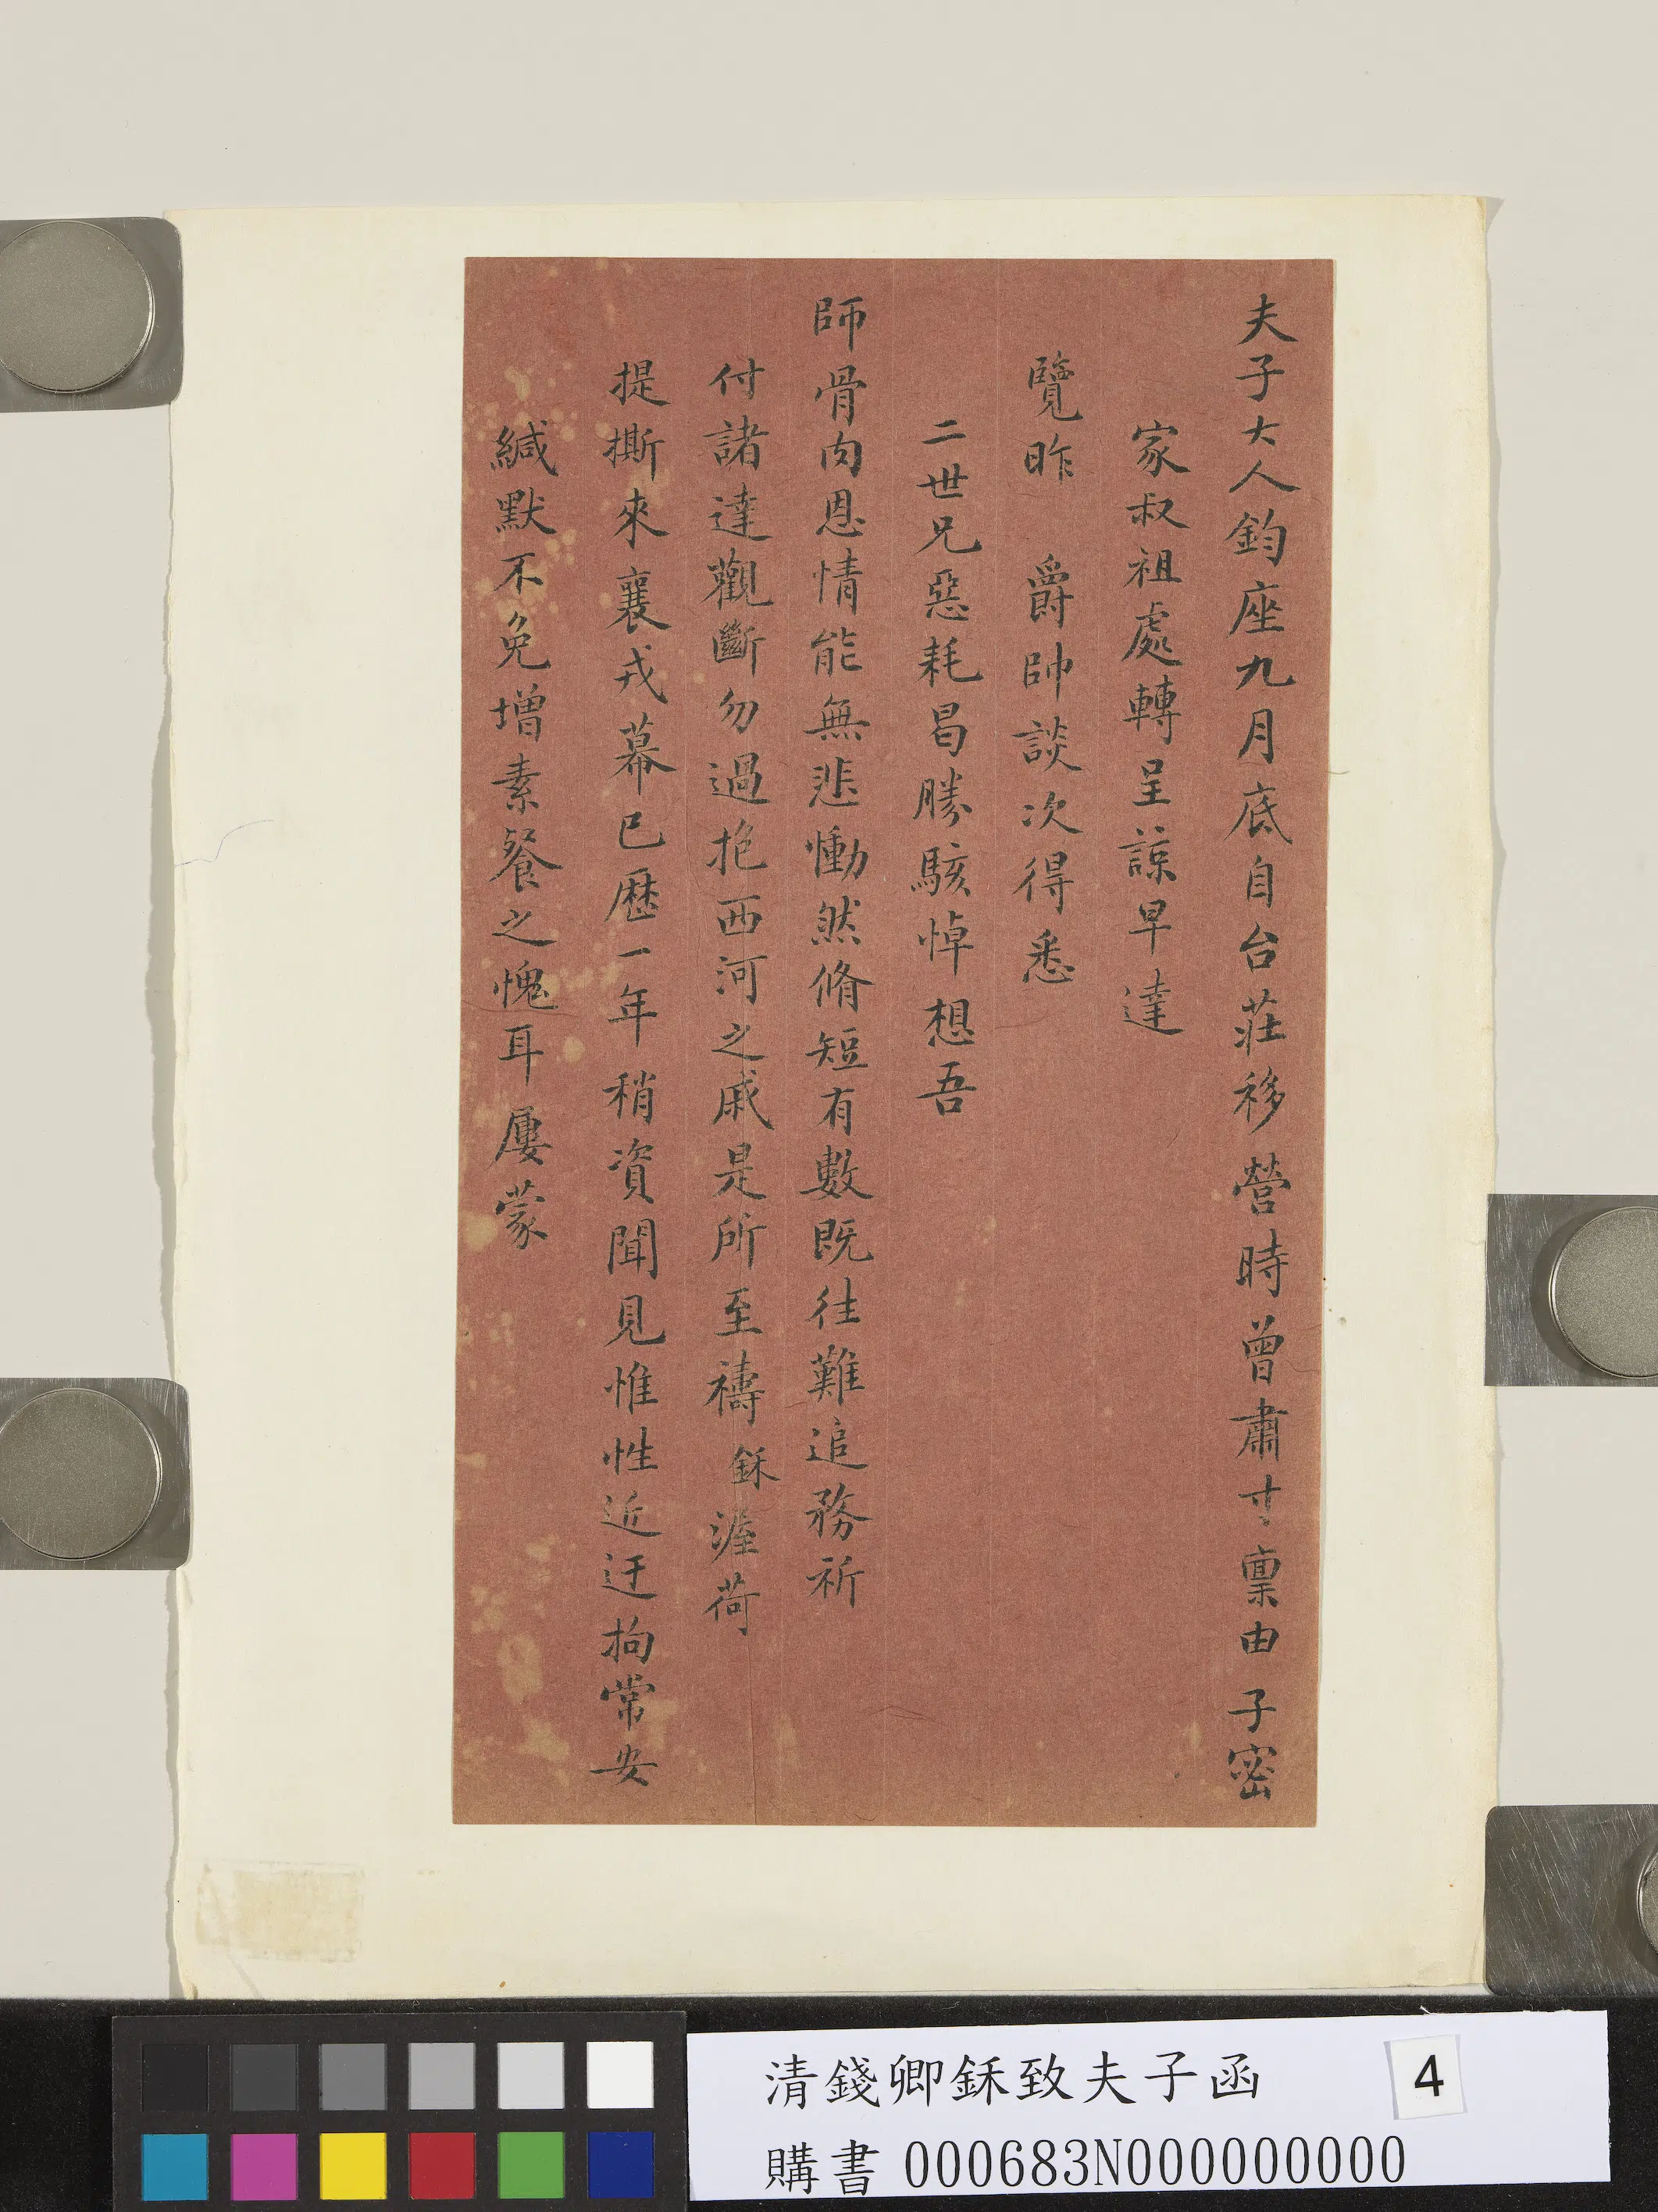 夫子大人鈞座九月底自台莊移營時曾肅寸稟由子密
家叔祖處轉呈諒早達
覽昨 爵帥談次得悉
二世兄惡耗曷勝駭悼想吾
師骨肉恩情能無悲慟然脩短有數既往難追務祈
付諸達觀斷勿過抱西河之戚是所至禱鉌渥荷
提撕來襄戎幕已歷一年稍資聞見惟性近迂拘常安
緘默不免增素餐之愧耳屢蒙
清錢卿鉌致夫子函
4
購書 000683N000000000